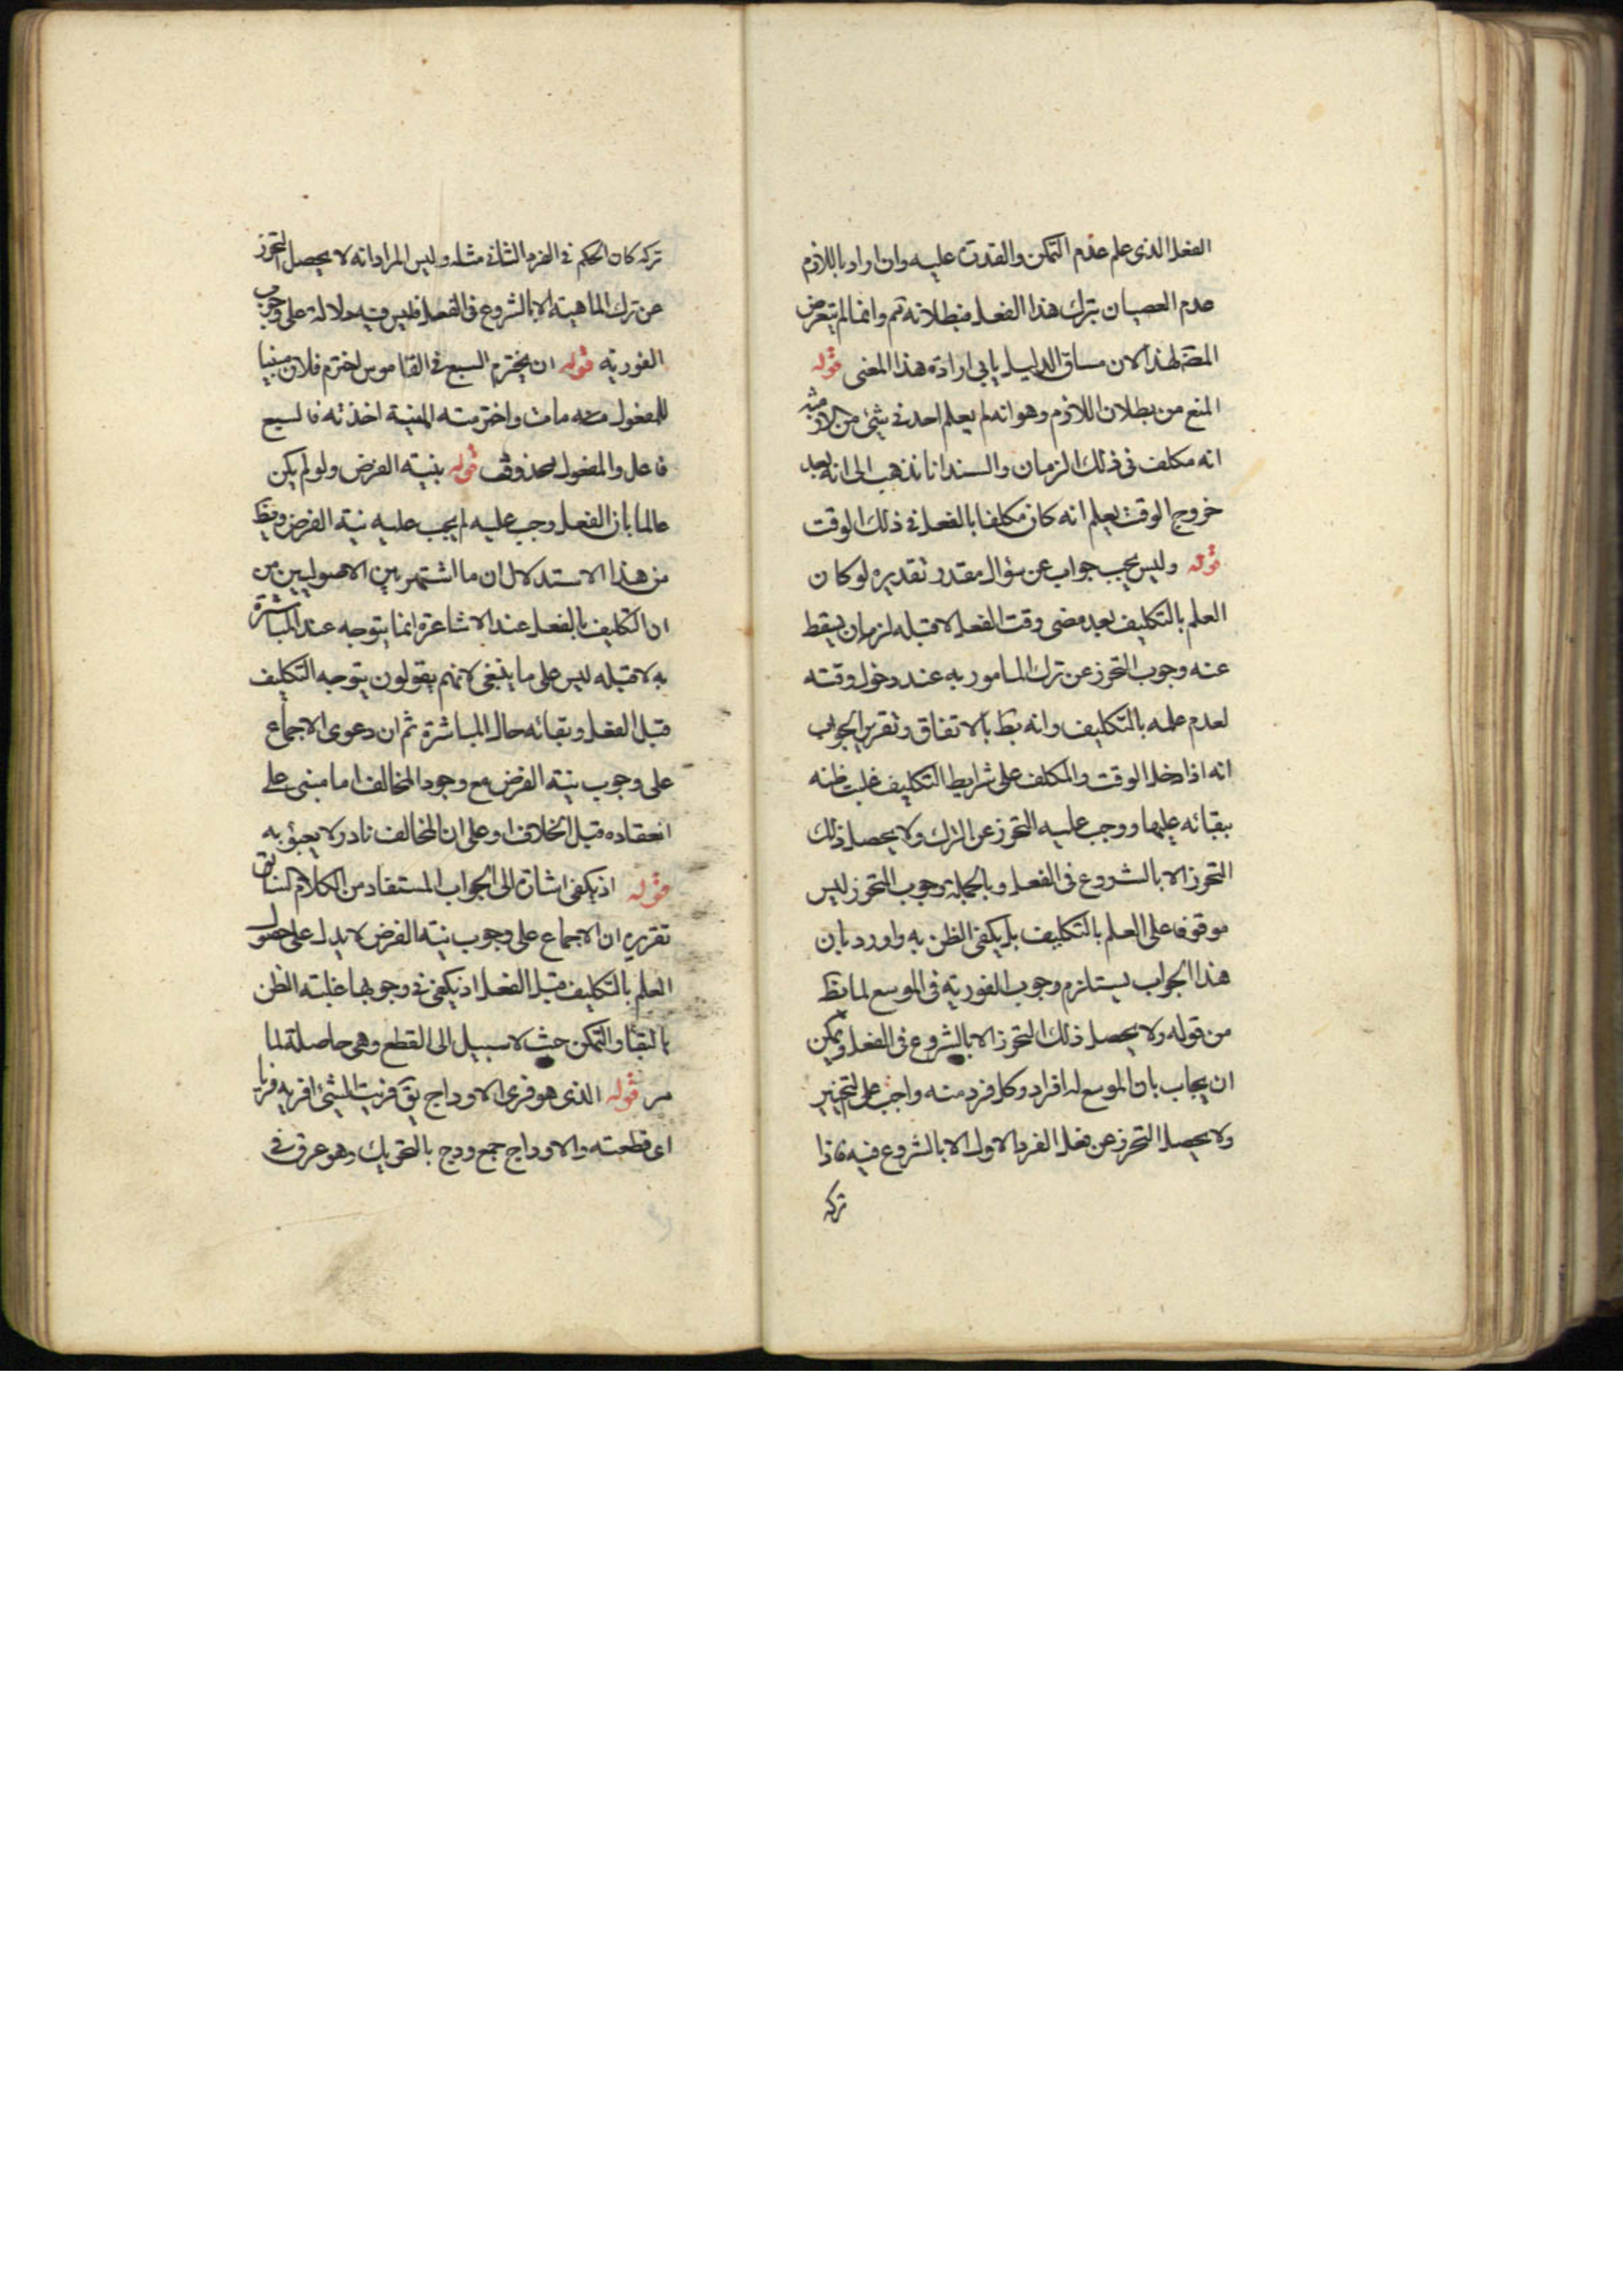 الفعل الذى علم عدم التمكن والقدرة عليه وان اراد باللازم
عدم العصيان بترك هذا الفعل فبطلانه ثم وانما لم يتعرض
المصَ لهذا لان مساق الدليل يابى ارادة هذا المعنى قوله
المنع من بطلان اللازم وهو انه لم يعلم احد فى شئ من الازمنة
انه مكلف فى ذلك الزمان والسند انا نذهب الى انه بعد
خروج الوقت يعلم انه كان مكلفا بالفعل فى ذلك الوقت
قوله وليس يجب جواب عن سؤال مقدر تقديره لو كان
العلم بالتكليف بعد مضى وقت الفعل لا قبله لزم ان يسقط
عنه وجوب التحرز عن ترك المامور به عند دخول وقته
لعدم علمه بالتكليف وانه بط بالاتفاق وتقرير الجواب
انه اذا دخل الوقت والمكلف على شرايط التكليف غلبت ظنه
ببقائه عليها ووجب عليه التحرز عن الترك ولا يحصل ذلك
التحرز الا بالشروع فى الفعل وبالجملة وجوب التحرز ليس
موقوفا على العلم بالتكليف بل يكفى الظن به واورد بان
هذا الجواب يستلزم وجوب الفورية فى الموسع لما يظ
من قوله ولا يحصل ذلك التحرز الا بالشروع فى الفعل ويمكن
ان يجاب بان الموسع له افراد وكل فرد منه واجب على التخيير
ولا يحصل التحرز عن فعل الفرد الاول الا بالشروع فيه فاذا
تركه
تركه كان الحكم فى الفرد الثانى مثله وليس المراد انه لا يحصل التحرز
عن ترك الماهية الا بالشروع فى الفعل فليس فيه دلالة على وجوب
الفورية قوله ان يخترم السبع فى القاموس اخترم فلان مبنيا
للمفعول مات واخترمته المنية اخذته فالسبع
فاعل والمفعول محذوف قوله بنية الفرض ولو لم يكن
عالما بان الفعل وجب عليه لم يجب عليه نية الفرض ويظ
من هذا الاستدلال ان ما اشتهر بين الاصوليين من
ان التكليف بالفعل عند الاشاعرة انما يتوجه عند المباشرة
به لا قبله ليس على ما ينبغى لانهم يقولون يتوجه التكليف
قبل الفعل وبقائه حال المباشرة ثم ان دعوى الاجماع
على وجوب نية الفرض مع وجود المخالف اما مبنى على
انعقاده قبل الخلاف او على ان المخالف نادر لا يعبؤ به
قوله اذ يكفى اشارة الى الجواب المستفاد من الكلام السابق
تقريره ان الاجماع على وجوب نية الفرض لا يدل على حصول
العلم بالتكليف قبل الفعل اذ يكفى فى وجوبها غلبة الظن
بالبقاء والتمكن حيث لا سبيل الى القطع وهى حاصلة لما
مر قوله الذى هو فرى الاوداج يق فريت الشئ افريه فريا
اى قطعته والاوداج جمع ودج بالتحريك وهو عرق فى